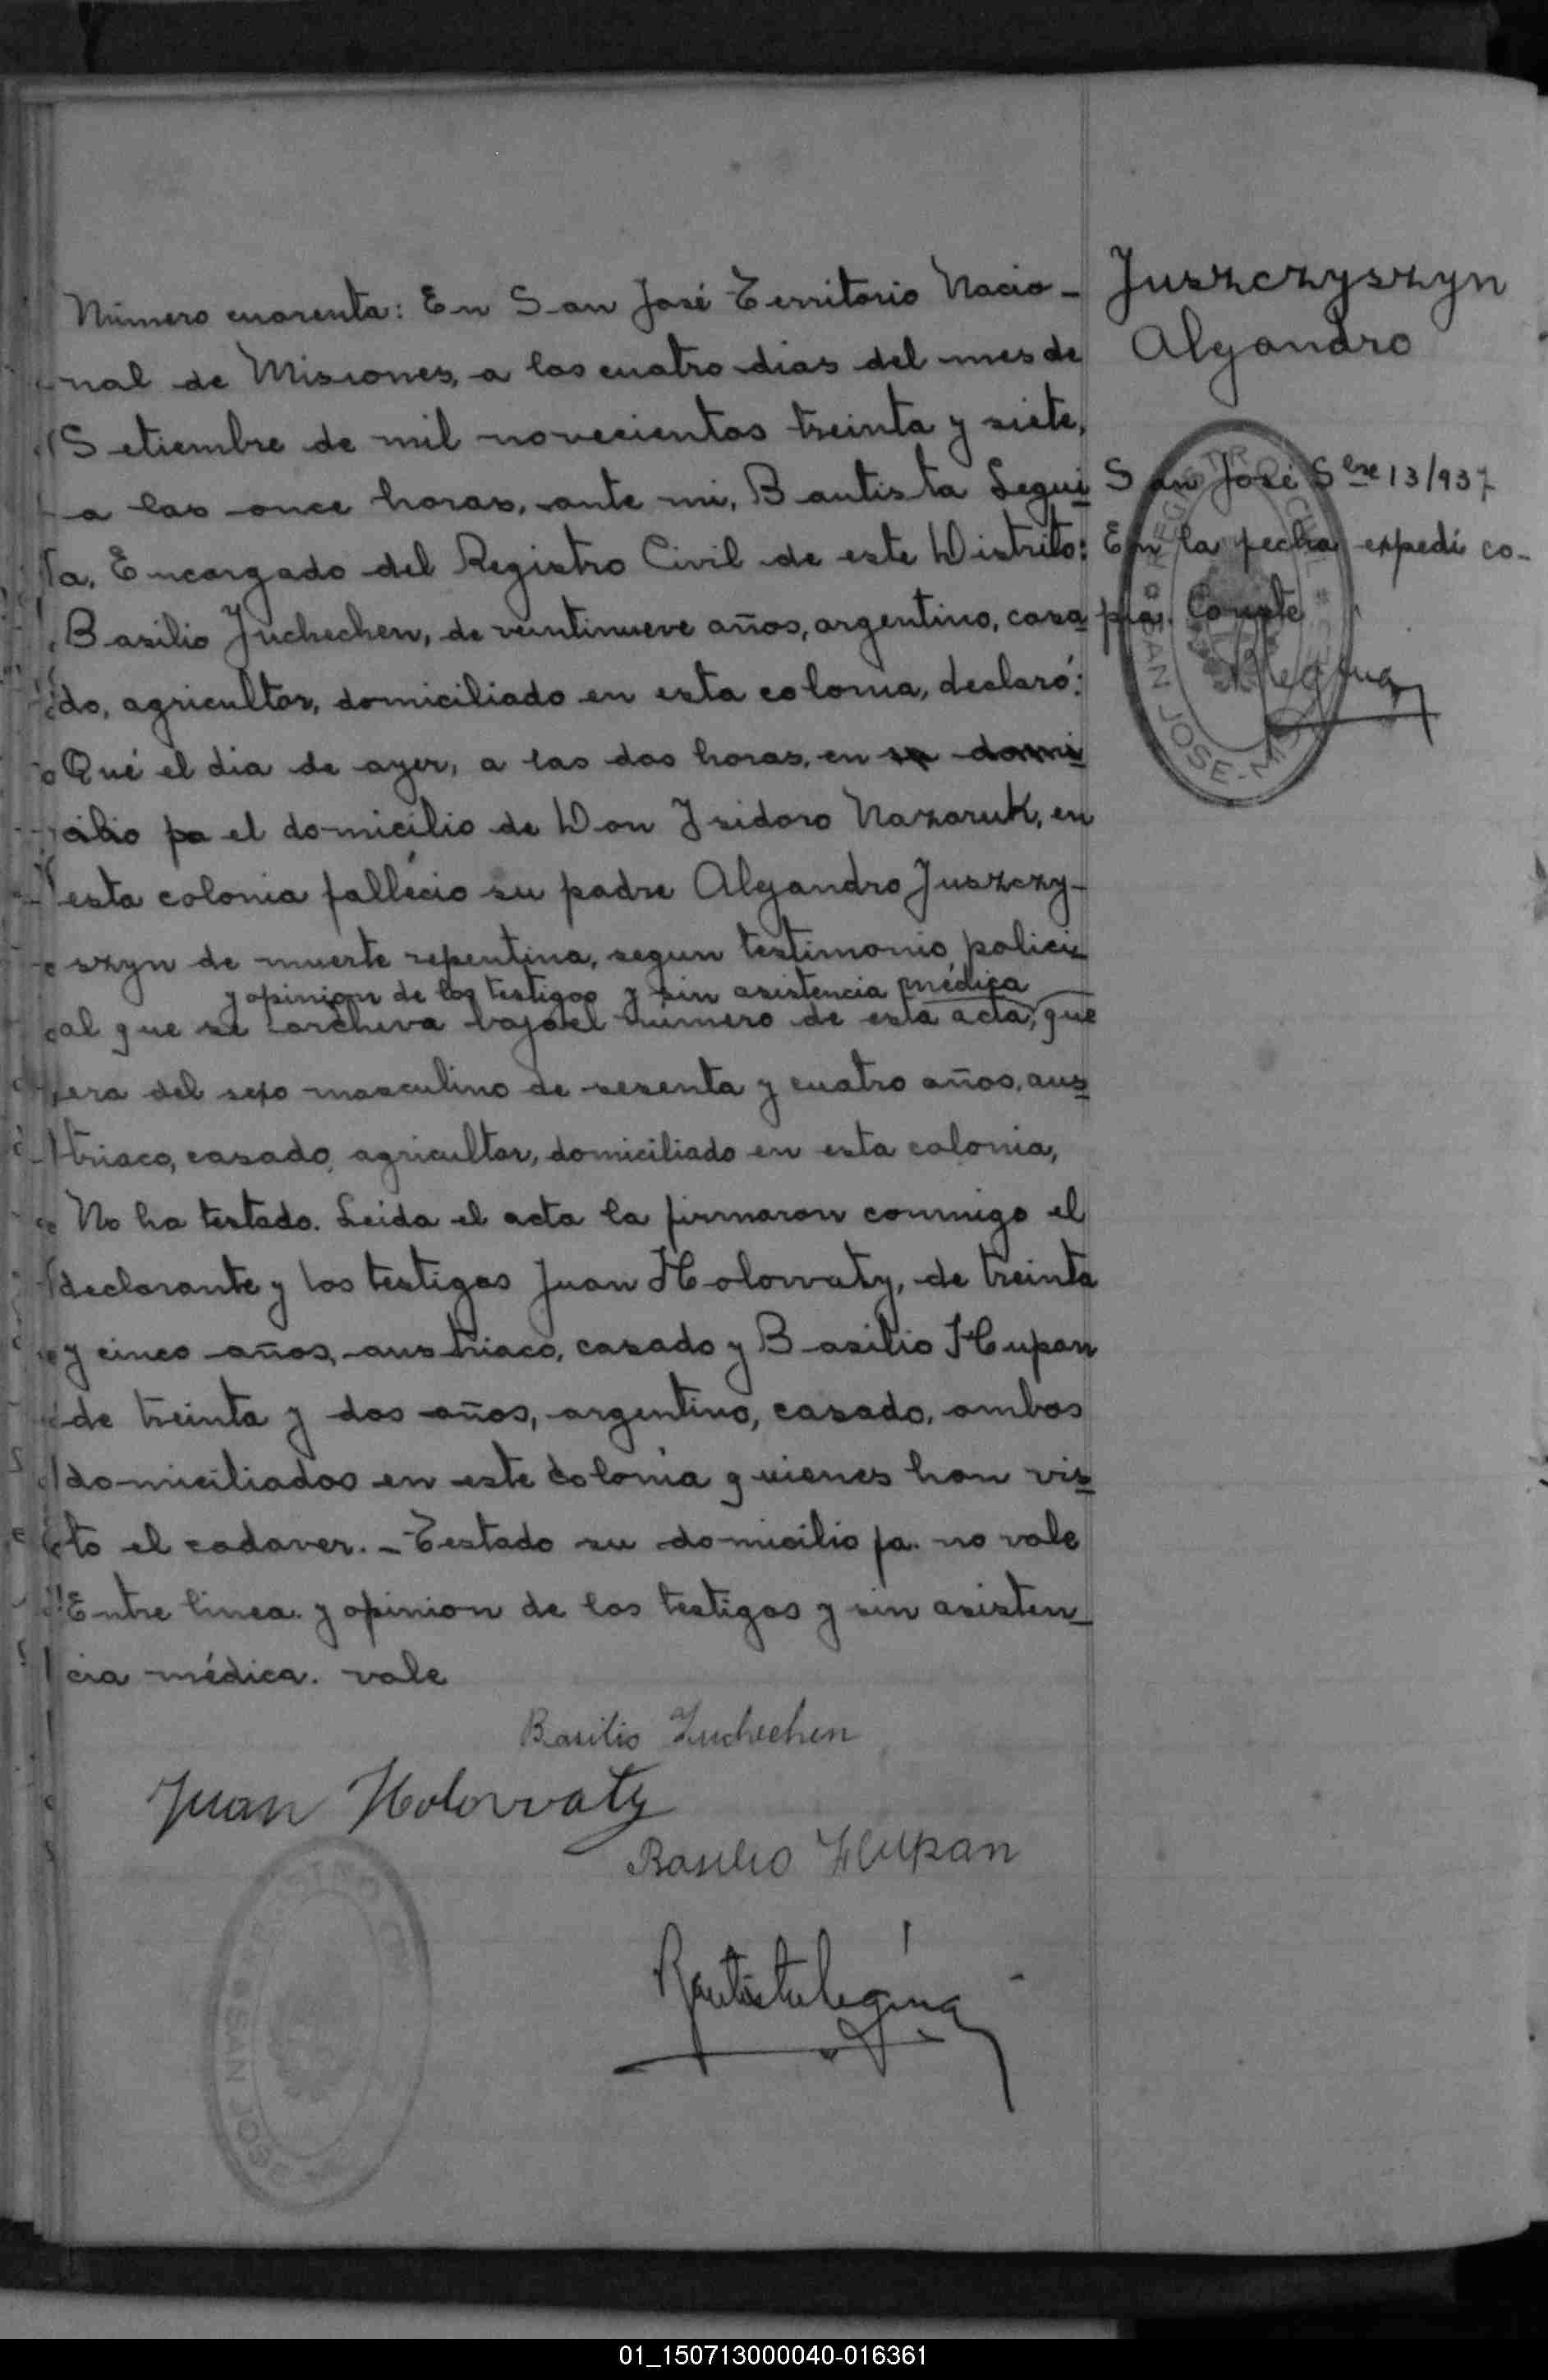 Número cuarenta: En San José Territorio Nacio-
nal de Misiones, a los cuatro dias del mes de
Setiembre de mil novecientos treinta y siete,
a las once horas, ante mi, Bautista Legui
a. Encargado del Registro Civil de este Distrito:
Basilio Juchechen, de veintinueve años, argentino, casa
do, agricultor, domiciliado en esta colonia, declaró:
Qué el dia de ayer, a las dos horas, en su domi
cilio pa el domicilio de Don Isidoro Nazaruk, en
esta colonia falleció su padre Alejandro Juszczy-
szyn de muerte repentina, segun testimonio polici
y opinion de los testigos y sin asistencia médica
al que se archiva bajo el número de esta acta, que
era del sexo masculino de sesenta y cuatro años, aus
triaco, casado, agricultor, domiciliado en esta colonia,
No ha testado. Leida el acta la firmaron conmigo el
declarante y los testigos Juan Holowaty, de treinta
y cinco años, austriaco, casado y Basilio Hupan
de treinta y dos años, argentino, casado, ambos
domiciliados en este colonia quienes han vis
to el cadaver. - Testado su domicilio pa. no vale
Entre linea. y opinion de los testigos y sin asisten
cia médica. vale
Basilio Juchechen
Juan Holowaty
Basilio Hupan
Bautista Leguia
SAN JOSE
Juszczyszyn
Alejandro
San José Sbre 13/937
En la fecha expedi co-
pia. Conste
Leguia
REGISTRO CIVIL
SAN JOSE - MIS
01_150713000040-016361